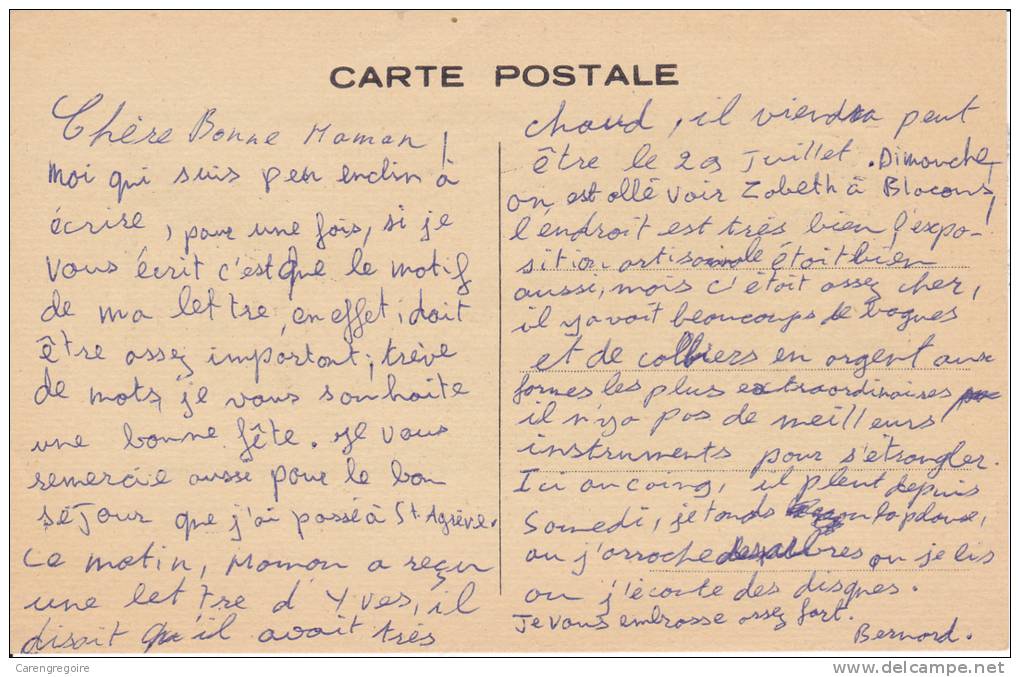 CARTE POSTALE
Chère Bonne Maman !
Moi qui suis peu enclin à
écrire, pour une fois, si je
vous écrit c'est que le motif
de ma lettre, en effet, doit
être assez important; trève
de mots, je vous souhaite
une bonne fête. Je vous
remercie aussi pour le bon
séjour que j'ai passé à St. Agrève.
Ce matin, Maman a reçu
une lettre d'Yves, il
disait qu'il avait très
chaud, il viendra peut
être le 29 Juillet. Dimanche,
on est allé voir Zabeth à Blacons,
l'endroit est très bien l'expo-
sition artisanale était bien
aussi, mais c'était assez cher,
il y avait beaucoups de bagues
et de colliers en argent aux
formes les plus extraordinaires
il n'y a pas de meilleurs
instruments pour s'étrangler.
Ici au coing, il pleut depuis
Samedi, je tonds la plouse,
ou j'arrache des arbres ou je lis
ou j'écoute des disques.
Je vous embrasse assez fort.
Bernard.
Carengregoire
delcampe.net